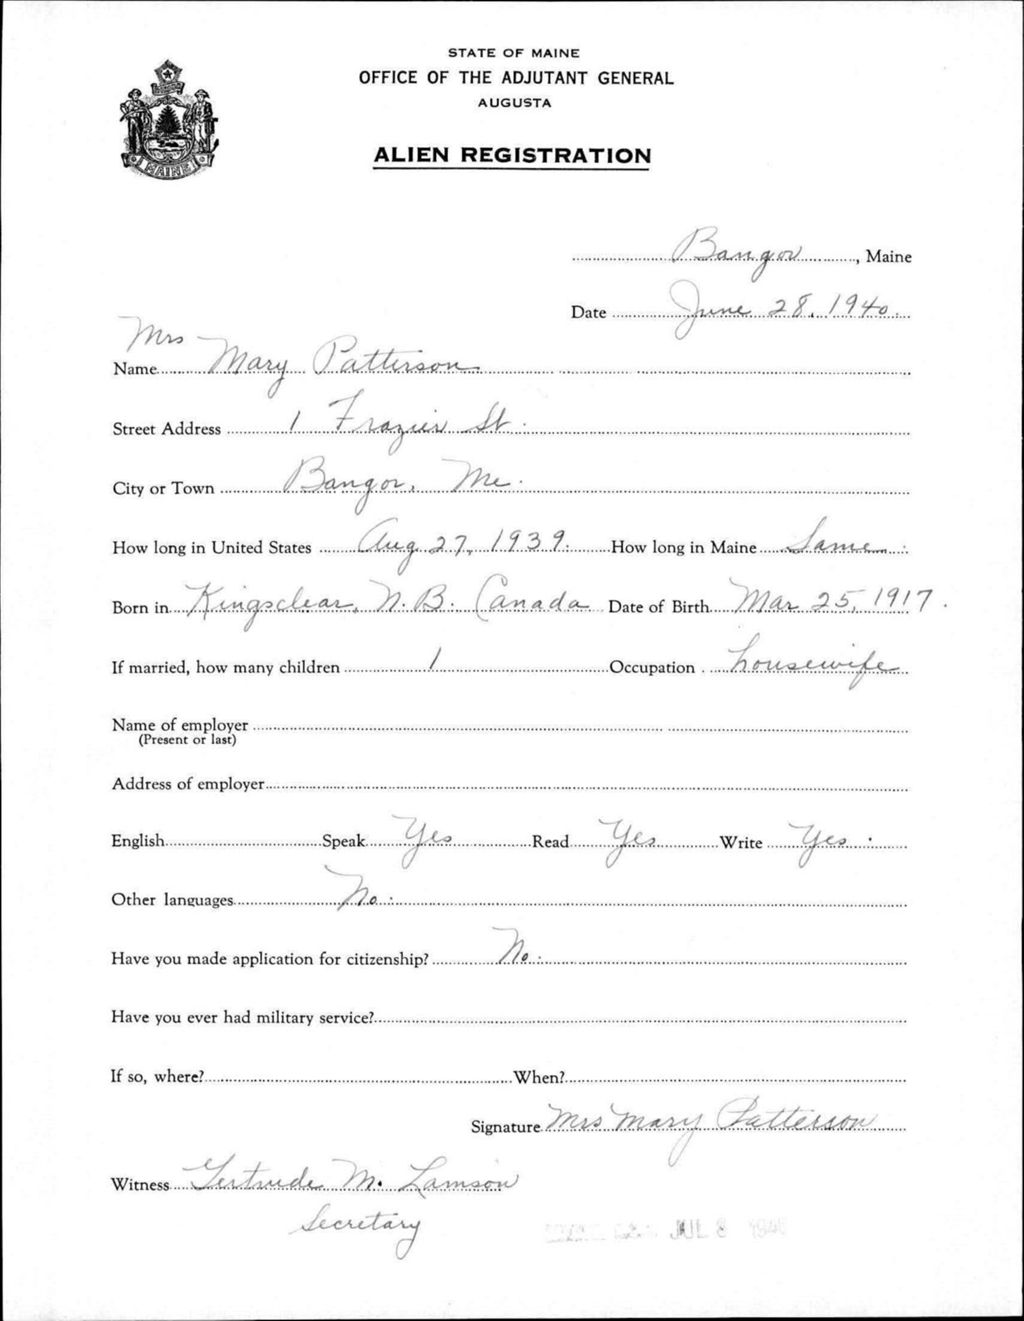 STATE OF MAINE
OFFICE OF THE ADJUTANT GENERAL
AUGUSTA
MAINE
ALIEN REGISTRATION
Bangor, Maine
Date June 28, 1940.
Mrs
Name Mary Patterson
Street Address 1 Frazier St.
City or Town Bangor, Me.
How long in United States Aug 27, 1939. How long in Maine Same.
Born in Kingsclear, N. B. Canada Date of Birth Mar 25, 1917.
If married, how many children 1 Occupation housewife
Name of employer
(Present or last)
Address of employer
English Speak Yes Read Yes Write Yes.
Other languages No.
Have you made application for citizenship? No.
Have you ever had military service?
If so, where? When?
Signature Mrs Mary Patterson
Witness Gertrude M. Lamson
Secretary
JUL 8 1940